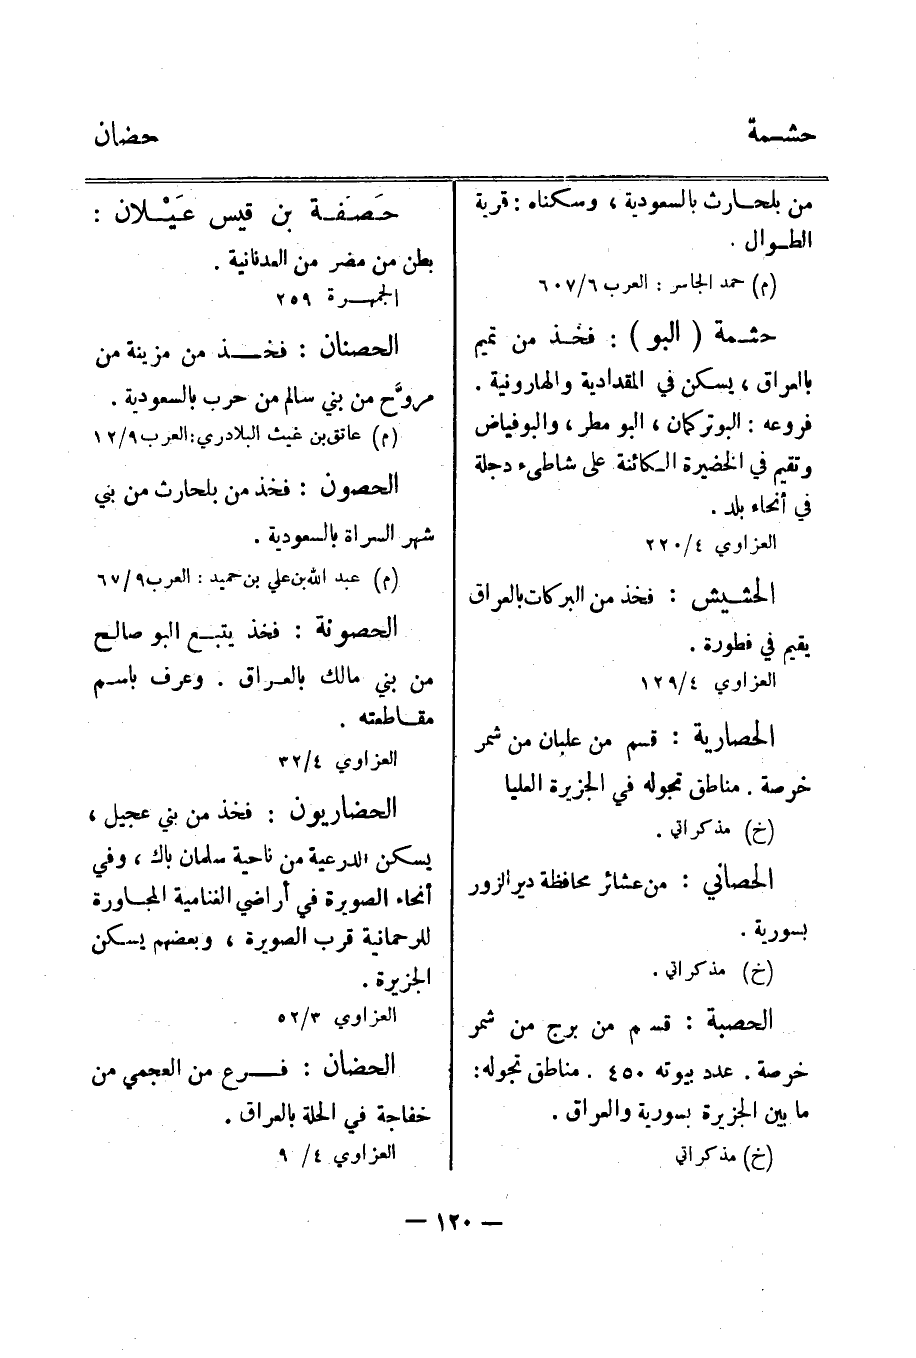 حشمة
حضان
من بلحارث بالسعودية ، وسكناه : قرية
الطوال .
(م) حمد الجاسر : العرب ٦٠٧/٦
حشمة ( البو ) : فخذ من تميم
بالعراق ، يسكن في المقدادية والهارونية .
فروعه : البوتركمان ، البو مطر ، والبوفياض
وتقيم في الخضيرة الكائنة على شاطىء دجلة
في أنحاء بلد .
العزاوي ٢٢٠/٤
الحشيش : فخذ من البركات بالعراق
يقيم في فطورة .
العزاوي ١٢٩/٤
الحصارية : قسم من علبان من شمر
خرصة . مناطق تجوله في الجزيرة العليا
(خ) مذكراتي .
الحصاني : من عشائر محافظة دير الزور
بسورية .
(خ) مذكراتي .
الحصبة : قسم من برج من شمر
خرصة . عدد بيوته ٤٥٠ . مناطق تجوله :
ما بين الجزيرة بسورية والعراق .
(خ) مذكراتي
حَصَفَة بن قيس عَيْلان :
بطن من مضر من العدنانية .
الجمهرة ٢٥٩
الحصنان : فخذ من مزينة من
مروَّح من بني سالم من حرب بالسعودية .
(م) عاتق بن غيث البلادري : العرب ١٢/٩
الحصون : فخذ من بلحارث من بني
شهر السراة بالسعودية .
(م) عبد الله بن علي بن حميد : العرب ٦٧/٩
الحصونة : فخذ يتبع البو صالح
من بني مالك بالعراق . وعرف باسم
مقاطعته .
العزاوي ٣٢/٤
الحضاريون : فخذ من بني عجيل ،
يسكن الدرعية من ناحية سلمان باك ، وفي
أنحاء الصويرة في أراضي الغنامية المجاورة
للرحمانية قرب الصويرة ، وبعضهم يسكن
الجزيرة .
العزاوي ٥٢/٣
الحضان : فرع من العجمي من
خفاجة في الحلة بالعراق .
العزاوي ٤/ ٩
— ١٢٠ —